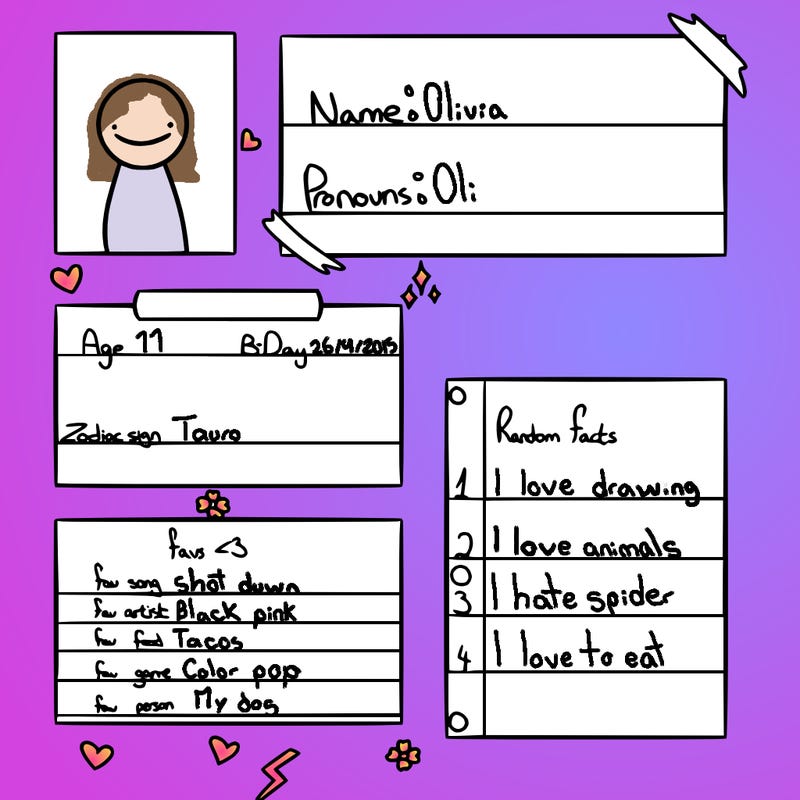 Name: Olivia
Pronouns: Oli
Age 11 B-Day 26/4/2015
Zodiac sign Tauro
favs <3
fav song shot duwn
fav artist Black pink
fav food Tacos
fav game Color pop
fav person My dog
Random facts
1 I love drawing
2 I love animals
3 I hate spider
4 I love to eat